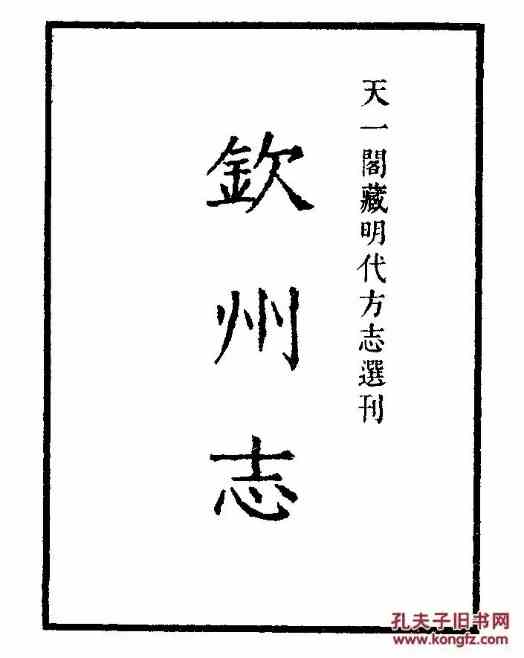 天一閣藏明代方志選刊
欽州志
孔夫子旧书网
www.kongfz.com